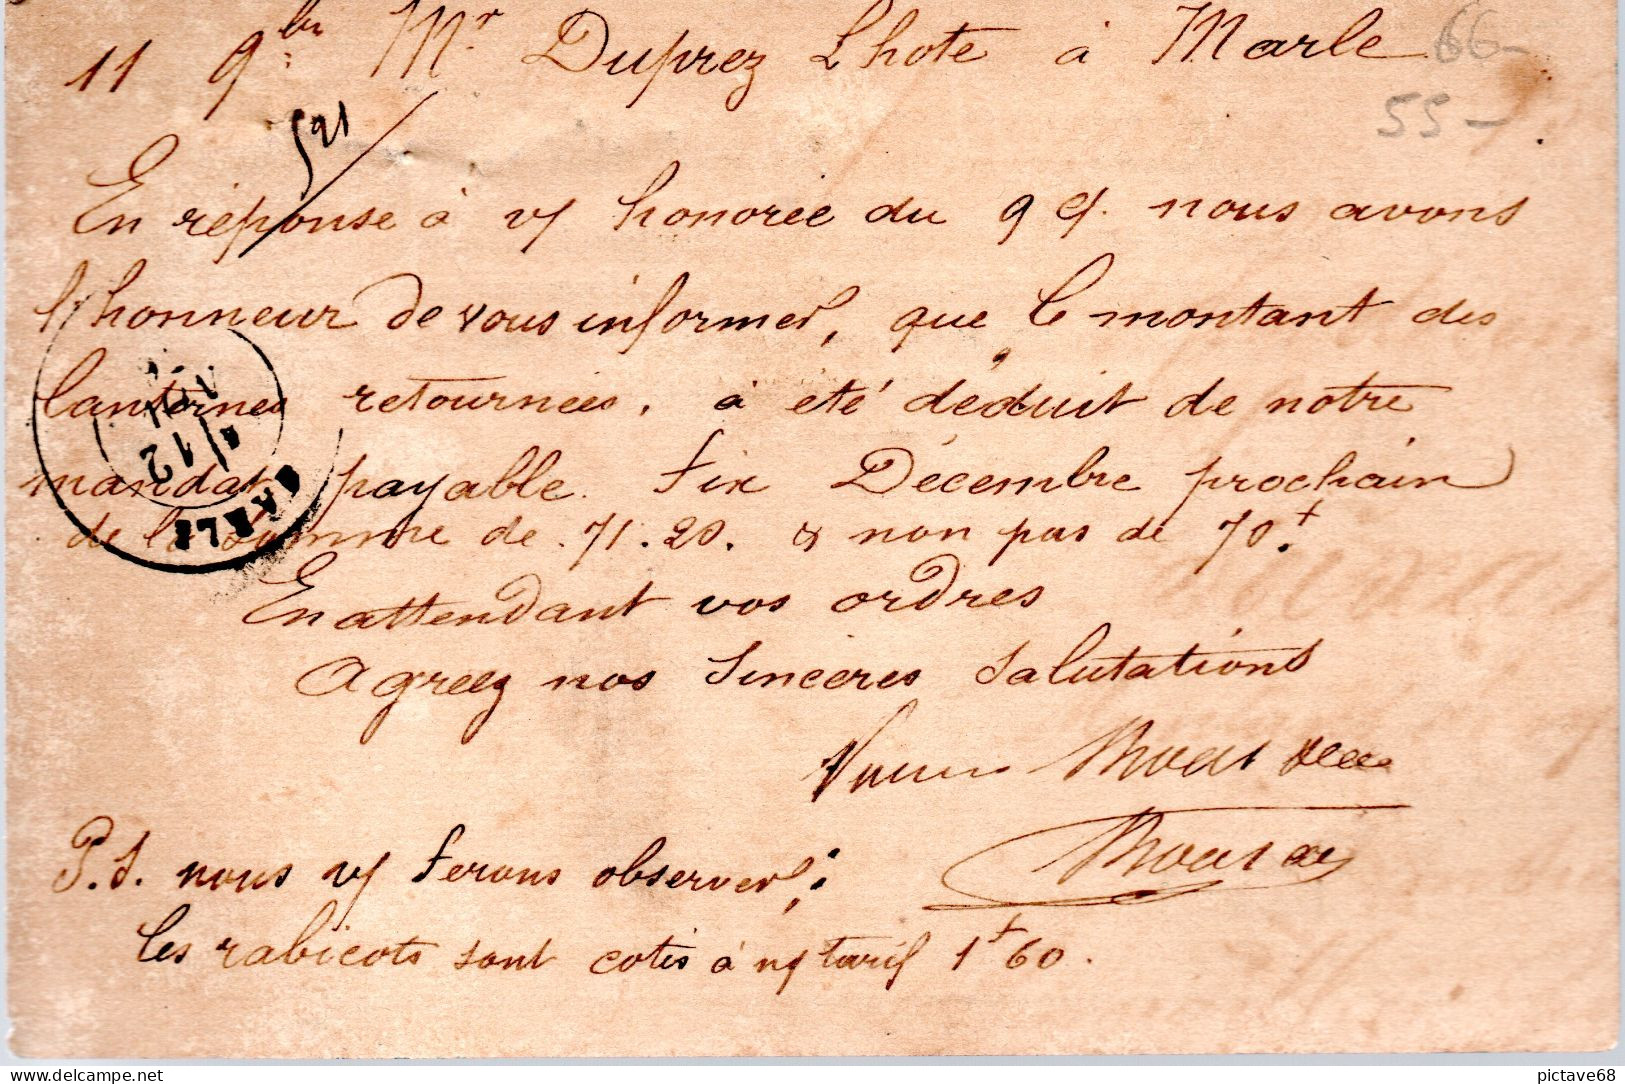 11 9bre Mr Duprez Lhote à Marle 66-
55-
521
En réponse à v/ honorée du 9 c/. nous avons
l'honneur de vous informer, que le montant des
lanternes retournées, a été déduit de notre
mandat payable fin Décembre prochain
de la somme de 71.20. & non pas de 70.f
En attendant vos ordres
Agréez nos sincères salutations
P.S. nous v/ ferons observer;
les rabicots sont cotés à n/ tarif 1f60.
12
MARLE
delcampe.net
pictave68